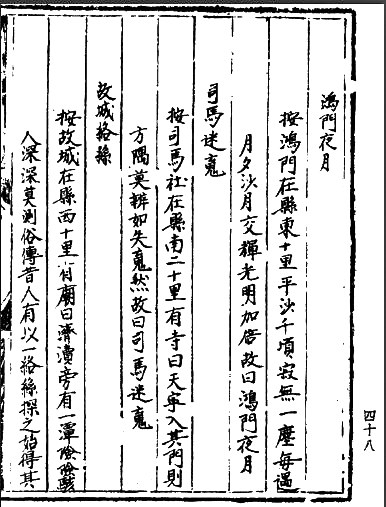 鴻門夜月
按鴻門在縣東十里平沙千頃寂無一塵每遇
月夕沙月交輝光明加倍故曰鴻門夜月
司馬迷䰟
按司馬社在縣南二十里有寺曰天寧入其門則
方隅莫辨如失䰟然故曰司馬迷䰟
故城絡絲
按故城在縣西十里有廟曰濟瀆旁有一潭陰陰
人深深莫測俗傳昔人有以一絡絲探之始得其
四十八